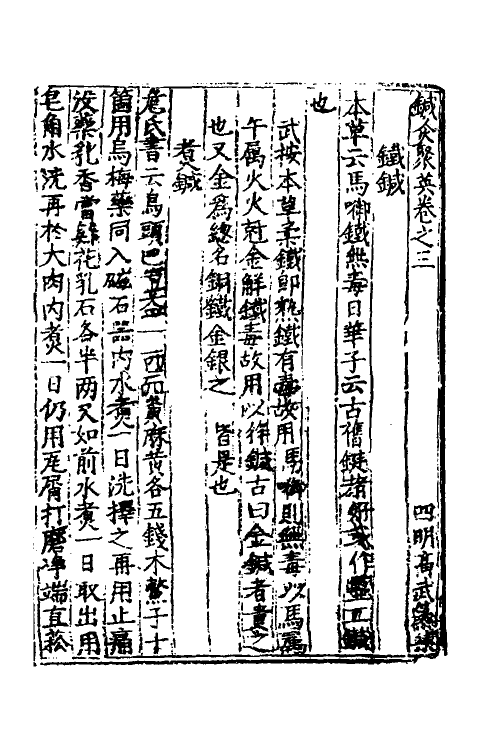 鍼灸聚英卷之三　四明高武纂集
鐵鍼
本草云馬啣鐵無毒日華子云古舊鋌者好或作醫工鍼
也
武按本草柔鐵即熟鐵有毒故用馬啣則無毒以馬屬
午屬火火尅金解鐵毒故用以作鍼古曰金鍼者貴之
也又金為總名銅鐵金銀之　皆是也
煮鍼
危氏書云烏頭巴豆各一兩硫黃麻黃各五錢木鱉子十
箇用烏梅藥同入磁石器內水煮一日洗擇之再用止痛
沒藥乳香當歸花乳石各半兩又如前水煮一日取出用
皂角水洗再於犬肉內煮一日仍用瓦屑打磨淨端直菘